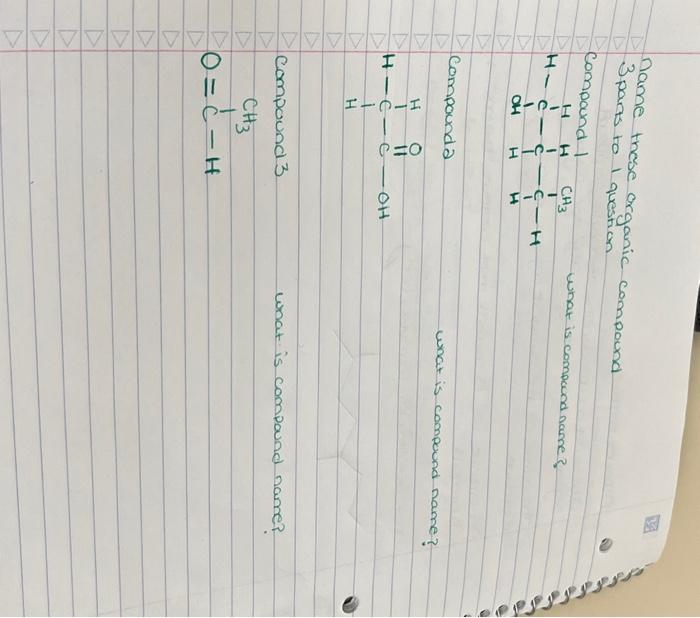 Name these organic compound
3 parts to 1 question
Compound 1 what is compound name?
H H CH3
H - C - C - C - H
OH H H
Compound 2 what is compound name?
H O
H - C - C - OH
H
Compound 3 what is compound name?
CH3
O = C - H